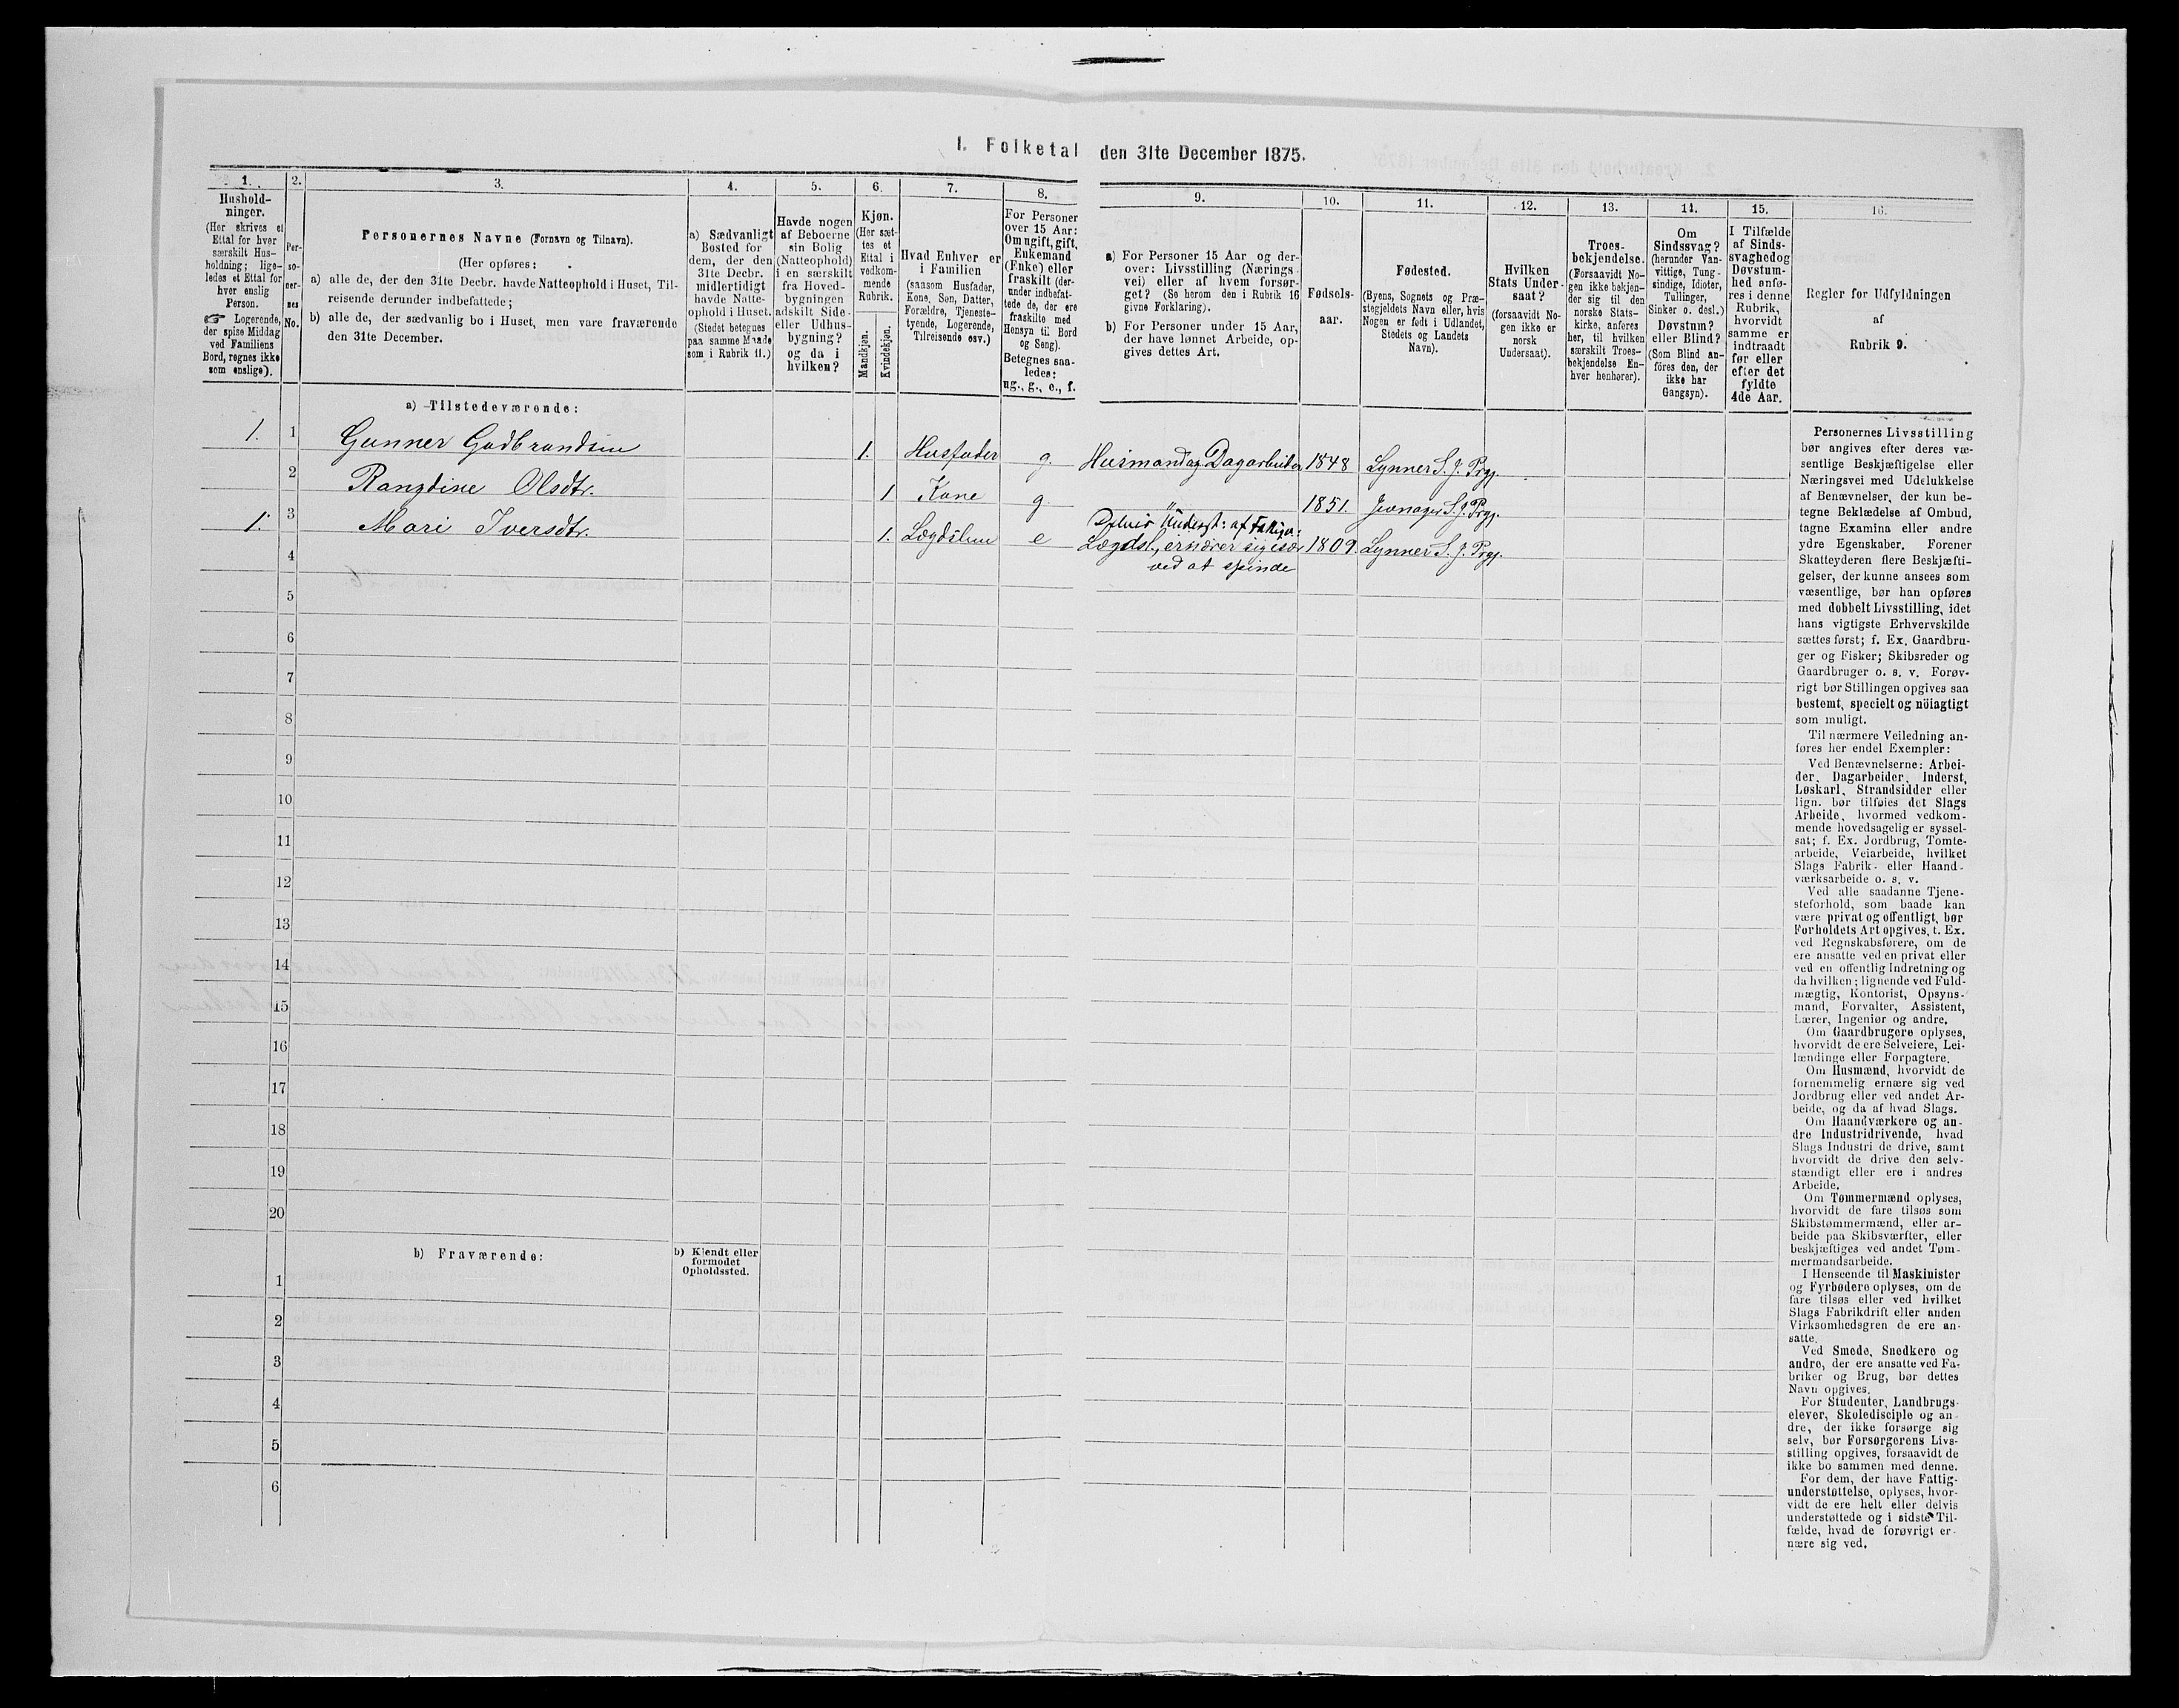 1. Folketal den 31te December 1875.
1.
Hushold-
ninger.
(Her skrives et
Ettal for hver
særskilt Hus-
holdning; lige-
ledes et Ettal for
hver enslig
Person.
☞ Logerende,
der spise Middag
ved Familiens
Bord, regnes ikke
som enslige).
2.
Per-
so-
ner-
nes
No.
3.
Personernes Navne (Fornavn og Tilnavn).
(Her opføres:
a) alle de, der den 31te Decbr. havde Natteophold i Huset, Til-
reisende derunder indbefattede;
b) alle de, der sædvanlig bo i Huset, men vare fraværende
den 31te December.
4.
a) Sædvanligt
Bosted for
dem, der den
31te Decbr.
midlertidigt
havde Natte-
ophold i Huset.
(Stedet betegnes
paa samme Maade
som i Rubrik 11.)
5.
Havde nogen
af Beboerne
sin Bolig
(Natteophold)
i en særskilt
fra Hoved-
bygningen
adskilt Side-
eller Udhus-
bygning?
og da i
hvilken?
6.
Kjøn.
(Her sæt-
tes et
Ettal i
vedkom-
mende
Rubrik.
Mandkjøn.
Kvindekjøn.
7.
Hvad Enhver er
i Familien
(saasom Husfader,
Kone, Søn, Datter,
Forældre, Tjeneste-
tyende, Logerende,
Tilreisende osv.)
8.
For Personer
over 15 Aar:
Om ugift, gift,
Enkemand
(Enke) eller
fraskilt (der-
under indbefat-
tede de, der ere
fraskilte med
Hensyn til Bord
og Seng).
Betegnes saa-
ledes:
ug., g., e., f.
9.
a) For Personer 15 Aar og der-
over: Livsstilling (Nærings-
vei) eller af hvem forsør-
get? (Se herom den i Rubrik 16
givne Forklaring).
b) For Personer under 15 Aar,
der have lønnet Arbeide, op-
gives dettes Art.
10.
Fødsels-
aar.
11.
Fødested.
(Byens, Sognets og Præ-
stegjeldets Navn eller, hvis
Nogen er født i Udlandet,
Stedets og Landets
Navn).
12.
Hvilken
Stats Under-
saat?
(forsaavidt No-
gen ikke er
norsk
Undersaat).
13.
Troes-
bekjendelse.
(Forsaavidt No-
gen ikke bekjen-
der sig til den
norske Stats-
kirke, anføres
her, til hvilken
særskilt Troes-
bekjendelse En-
hver henhører).
14.
Om
Sindssvag?
(herunder Van-
vittige, Tung-
sindige, Idioter,
Tullinger,
Sinker o. desl.)
Døvstum?
eller Blind?
(Som Blind an-
føres den, der
ikke har
Gangsyn).
15.
I Tilfælde
af Sinds-
svaghed og
Døvstum-
hed anfø-
res i denne
Rubrik,
hvorvidt
samme er
indtraadt
før eller
efter det
fyldte
4de Aar.
16.
Regler for Udfyldningen
af
Rubrik 9.
a) Tilstedeværende:
1. 1 Gunner Gudbrandsen 1. Husfader g. Husmand og Dagarbeider 1848 Lynner S. J. Prgj.
2 Rangdine Olsdtr. 1 Kone g. " 1851. Jevnager S. J. Prgj.
1. 3 Mari Iversdtr. 1. Lægdslem e Delvis Underst: af Fattigv:
Lægdsl., ernærer sig især 1809. Lynner S. J. Prgj.
ved at spinde
4
5
6
7
8
9
10
11
12
13
14
15
16
17
18
19
20
b) Fraværende:
b) Kjendt eller
formodet
Opholdssted.
1
2
3
4
5
6
Personernes Livsstilling
bør angives efter deres væ-
sentlige Beskjæftigelse eller
Næringsvei med Udelukkelse
af Benævnelser, der kun be-
tegne Beklædelse af Ombud,
tagne Examina eller andre
ydre Egenskaber. Forener
Skatteyderen flere Beskjæfti-
gelser, der kunne ansees som
væsentlige, bør han opføres
med dobbelt Livsstilling, idet
hans vigtigste Erhvervskilde
sættes først; f. Ex. Gaardbru-
ger og Fisker; Skibsreder og
Gaardbruger o. s. v. Forøv-
rigt bør Stillingen opgives saa
bestemt, specielt og nöiagtigt
som muligt.
Til nærmere Veiledning an-
føres her endel Exempler:
Ved Benævnelserne: Arbei-
der, Dagarbeider, Inderst,
Løskarl, Strandsidder eller
lign. bør tilføies det Slags
Arbeide, hvormed vedkom-
mende hovedsagelig er syssel-
sat; f. Ex. Jordbrug, Tomte-
arbeide, Veiarbeide, hvilket
Slags Fabrik- eller Haand-
værksarbeide o. s. v.
Ved alle saadanne Tjene-
steforhold, som baade kan
være privat og offentligt, bør
Forholdets Art opgives, t. Ex.
ved Regnskabsførere, om de
ere ansatte ved en privat eller
ved en offentlig Indretning og
da hvilken; lignende ved Fuld-
mægtig, Kontorist, Opsyns-
mand, Forvalter, Assistent,
Lærer, Ingeniør og andre.
Om Gaardbrugere oplyses,
hvorvidt de ere Selveiere, Lei-
lændinge eller Forpagtere.
Om Husmænd, hvorvidt de
fornemmelig ernære sig ved
Jordbrug eller ved andet Ar-
beide, og da af hvad Slags.
Om Haandværkere og an-
dre Industridrivende, hvad
Slags Industri de drive, samt
hvorvidt de drive den selv-
stændigt eller ere i andres
Arbeide.
Om Tømmermænd oplyses,
hvorvidt de fare tilsøs som
Skibstømmermænd, eller ar-
beide paa Skibsværfter, eller
beskjæftiges ved andet Tøm-
mermandsarbeide.
I Henseende til Maskinister
og Fyrbødere oplyses, om de
fare tilsøs eller ved hvilket
Slags Fabrikdrift eller anden
Virksomhedsgren de ere an-
satte.
Ved Smede, Snedkere og
andre, der ere ansatte ved Fa-
briker og Brug, bør dettes
Navn opgives.
For Studenter, Landbrugs-
elever, Skoledisciple og an-
dre, der ikke forsørge sig
selv, bør Forsørgerens Livs-
stilling opgives, forsaavidt de
ikke bo sammen med denne.
For dem, der have Fattig-
understøttelse, oplyses, hvor-
vidt de ere helt eller delvis
understøttede og i sidste Til-
fælde, hvad de forøvrigt er-
nære sig ved.